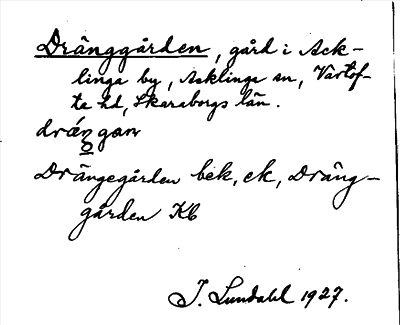 Dränggården, gård i Ack-
linga by, Acklinga sn, Vartof-
ta hd, Skaraborgs län.
Drängegården bek, ek, Dräng-
gården Kb
I. Lundahl 1927.